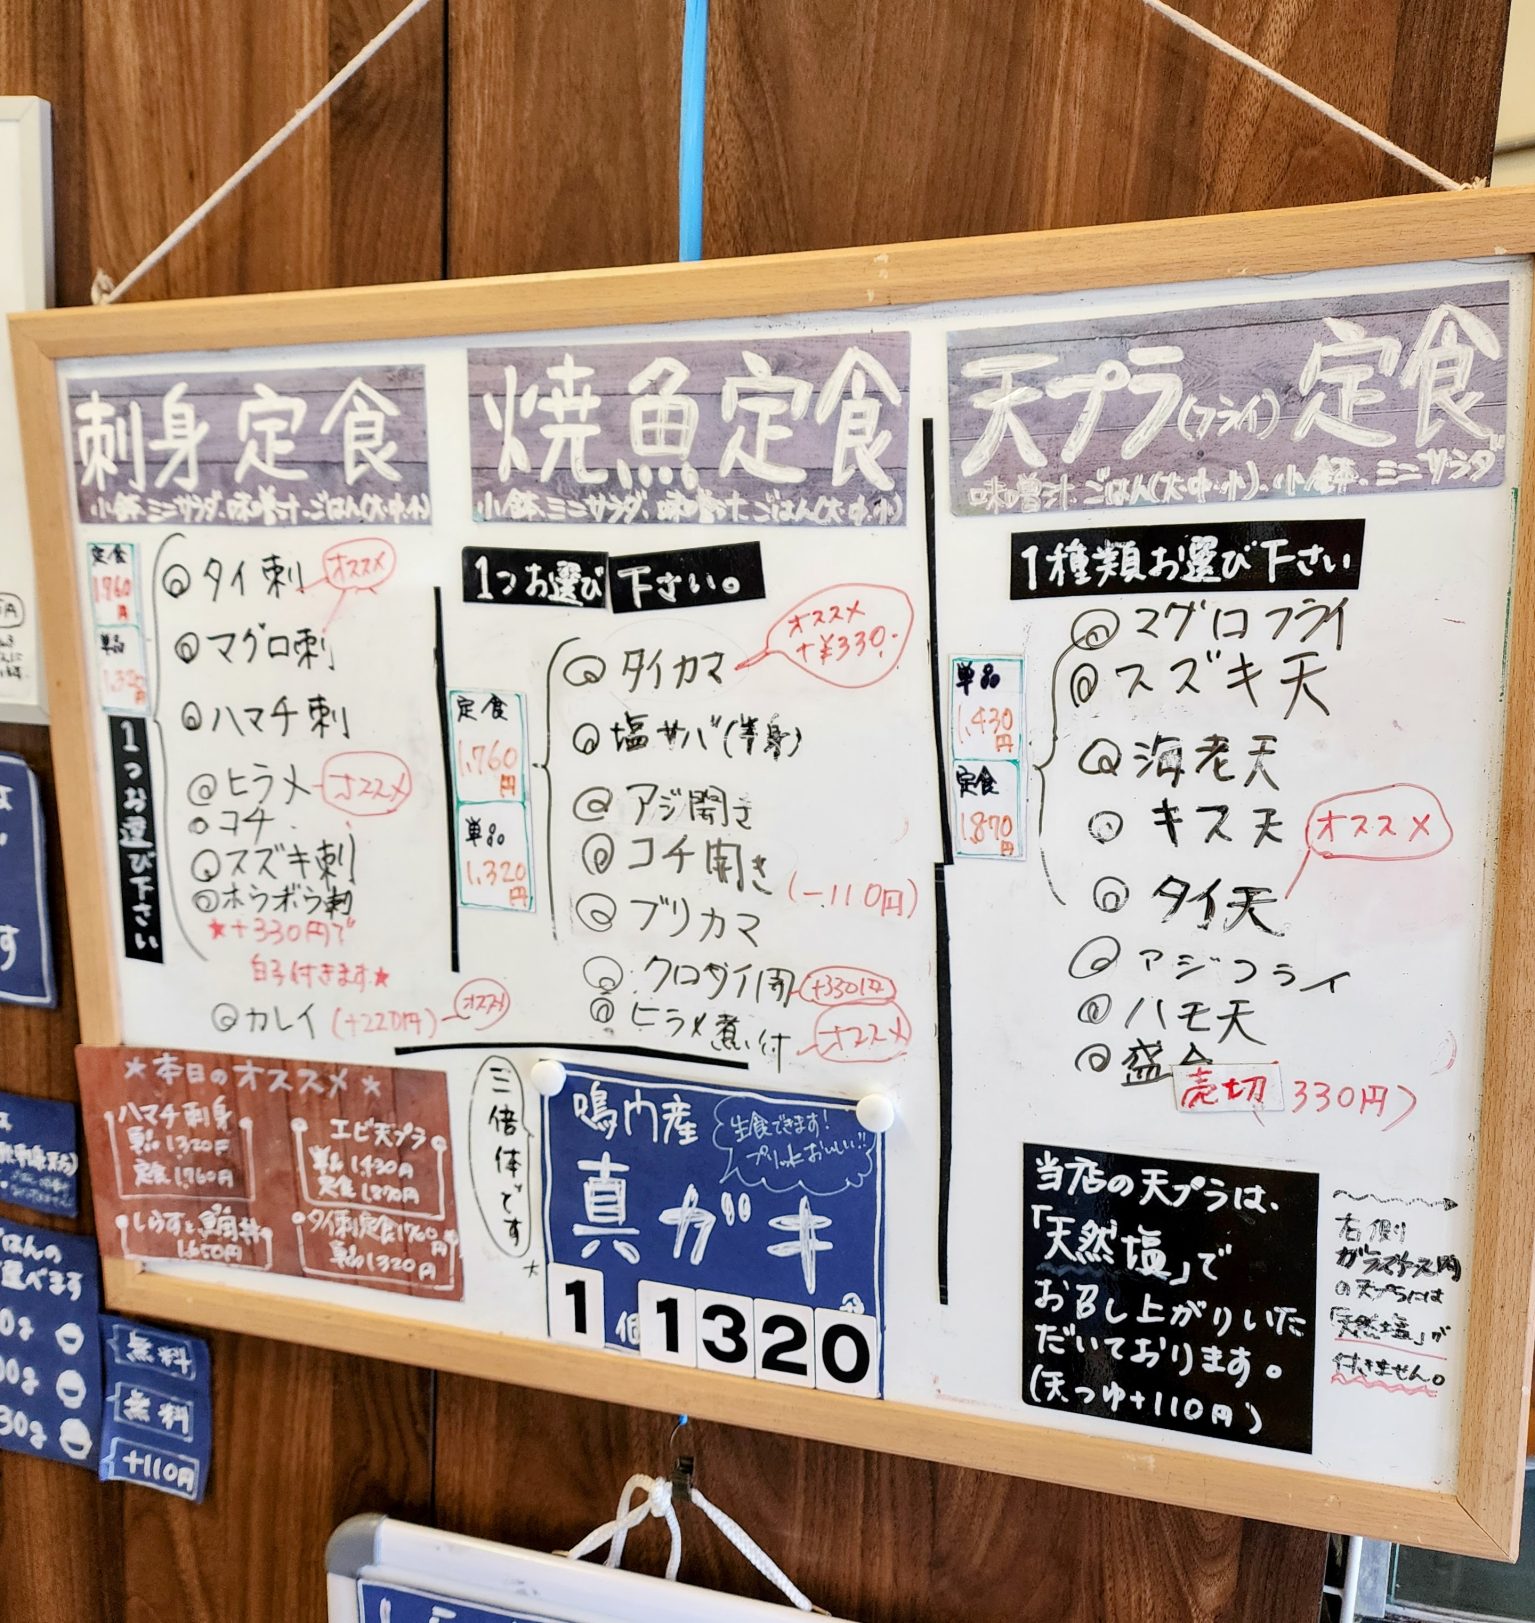 刺身定食
小鉢、ミニサラダ、味噌汁、ごはん(大・中・小)
定食
1,760円
単品
1,320円
1つお選び下さい
タイ刺 オススメ
マグロ刺
ハマチ刺
ヒラメ オススメ
コチ
スズキ刺
ホウボウ刺
★+330円で
白子付きます★
カレイ (+220円) オススメ
★本日のオススメ★
ハマチ刺身
単品1,320円
定食1,760円
エビ天プラ
単品1,430円
定食1,870円
しらすと
1,650円
タイ刺定食1760円
単品1320円
焼魚定食
小鉢、ミニサラダ、味噌汁、ごはん(大・中・小)
1つお選び下さい。
定食
1,760円
単品
1,320円
タイカマ オススメ
+¥330.
塩サバ(半身)
アジ開き
コチ開き (-110円)
ブリカマ
クロダイ開 +330円
ヒラメ煮付 オススメ
三倍体です
鳴門産
生食できます!
真ガキ
1個1320
天プラ(フライ)定食
味噌汁、ごはん(大・中・小)、小鉢、ミニサラダ
1種類お選び下さい
単品
1,430円
定食
1,870円
マグロフライ
スズキ天
海老天
キス天 オススメ
タイ天
アジフライ
ハモ天
盛合
売切 330円)
当店の天プラは、
「天然塩」で
お召し上がりいた
だいております。
(天つゆ+110円)
右側
ガラスケース内
の天プラには
「天然塩」が
付きません。
無料
無料
+110円